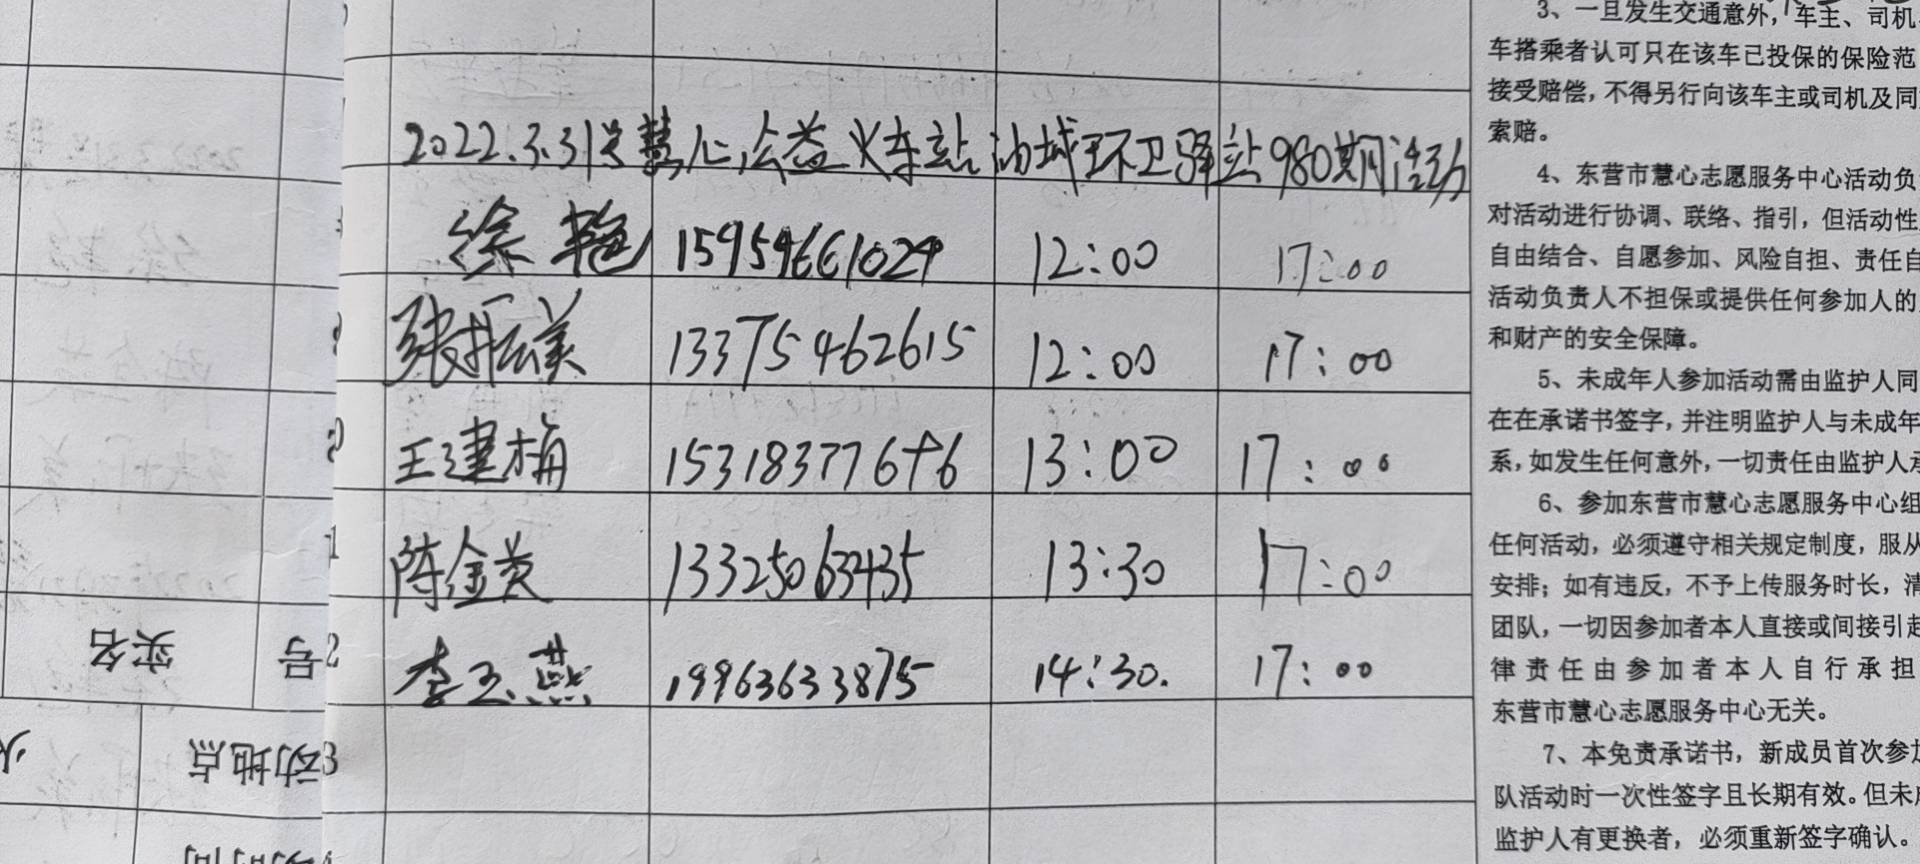 2022.3.31号慧心公益火车站油城环卫驿站980期活动
徐艳 15954661024 12:00 17:00
张振美 13375462615 12:00 17:00
王建梅 15318377676 13:00 17:00
陈金英 13325063435 13:30 17:00
李玉燕 19963633875 14:30. 17:00
实名
号
动地点
火
3、一旦发生交通意外,车主、司机
车搭乘者认可只在该车已投保的保险范
接受赔偿,不得另行向该车主或司机及同
索赔。
4、东营市慧心志愿服务中心活动负
对活动进行协调、联络、指引,但活动性
自由结合、自愿参加、风险自担、责任自
活动负责人不担保或提供任何参加人的
和财产的安全保障。
5、未成年人参加活动需由监护人同
在在承诺书签字,并注明监护人与未成年
系,如发生任何意外,一切责任由监护人承
6、参加东营市慧心志愿服务中心组
任何活动,必须遵守相关规定制度,服从
安排;如有违反,不予上传服务时长,清
团队,一切因参加者本人直接或间接引起
律责任由参加者本人自行承担
东营市慧心志愿服务中心无关。
7、本免责承诺书,新成员首次参加
队活动时一次性签字且长期有效。但未
监护人有更换者,必须重新签字确认。